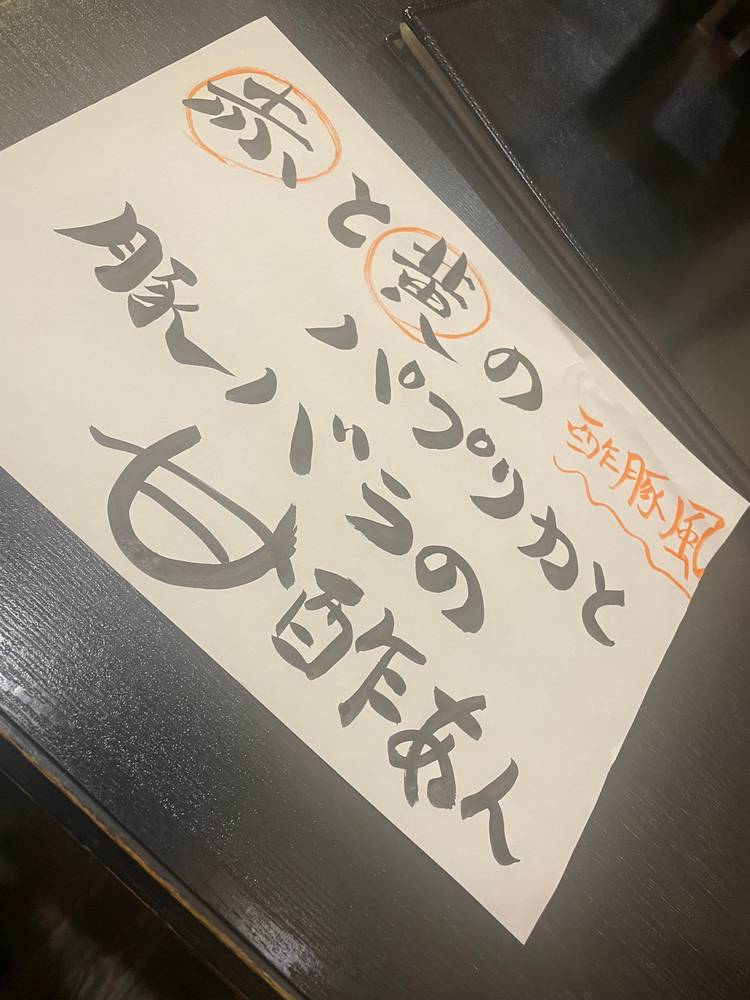 赤と黄の
パプリカと
豚バラの
甘酢あん
酢豚風